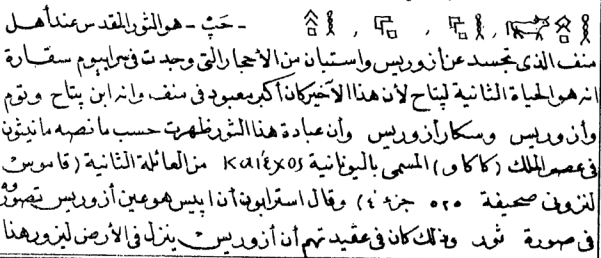 - حَپْ - هو الثور المقدس عند أهل
منف الذى تجسد عن أزوريس واستبان من الأحجار التى وجدت فى سرابيوم سقارة
انه هو الحياة الثانية لپتاح لأن هذا الأخير كان أكبر معبود فى منف وانه ابن پتاح وتوم
وأن وريس وسكار أزوريس وأن عبادة هذا الثور ظهرت حسب ما نصه مانيثون
فى عصر الملك (كاكاو) المسمى باليونانية Καιέχος من العائلة الثانية (قاموس
لنزونى صحيفة ٥٢٥ جزء ٤) وقال استرابون أن اپيس هو عين أزوريس تصوّر
فى صورة ثور وذلك كان فى عقيدتهم أن أزوريس ينزل فى الأرض ليزور هنا